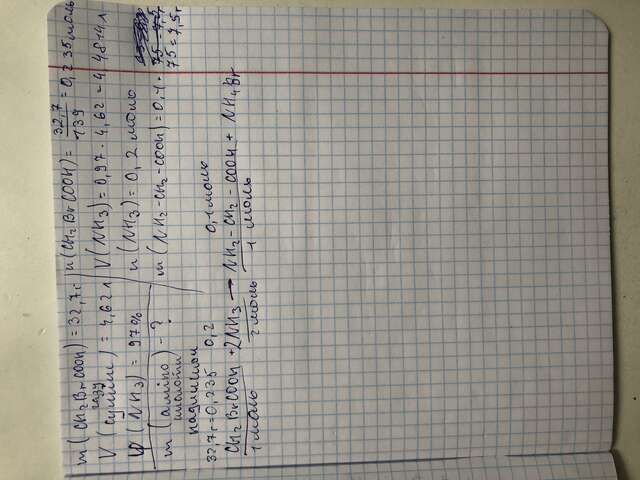 m(CH2BrCOOH) = 32,7г
V(суміші газу) = 4,62 л
W(NH3) = 97%
m(аміно кислоти) - ?
n(CH2BrCOOH) = 32,7/139 = 0,235 моль
V(NH3) = 0,97 · 4,62 = 4,4814 л
n(NH3) = 0,2 моль
m(NH2-CH2-COOH) = 0,1 · 75 = 7,5г
надлишок
32,7г=0,235 0,2 0,1 моль
CH2BrCOOH + 2NH3 → NH2-CH2-COOH + NH4Br
1 моль 2 моль 1 моль